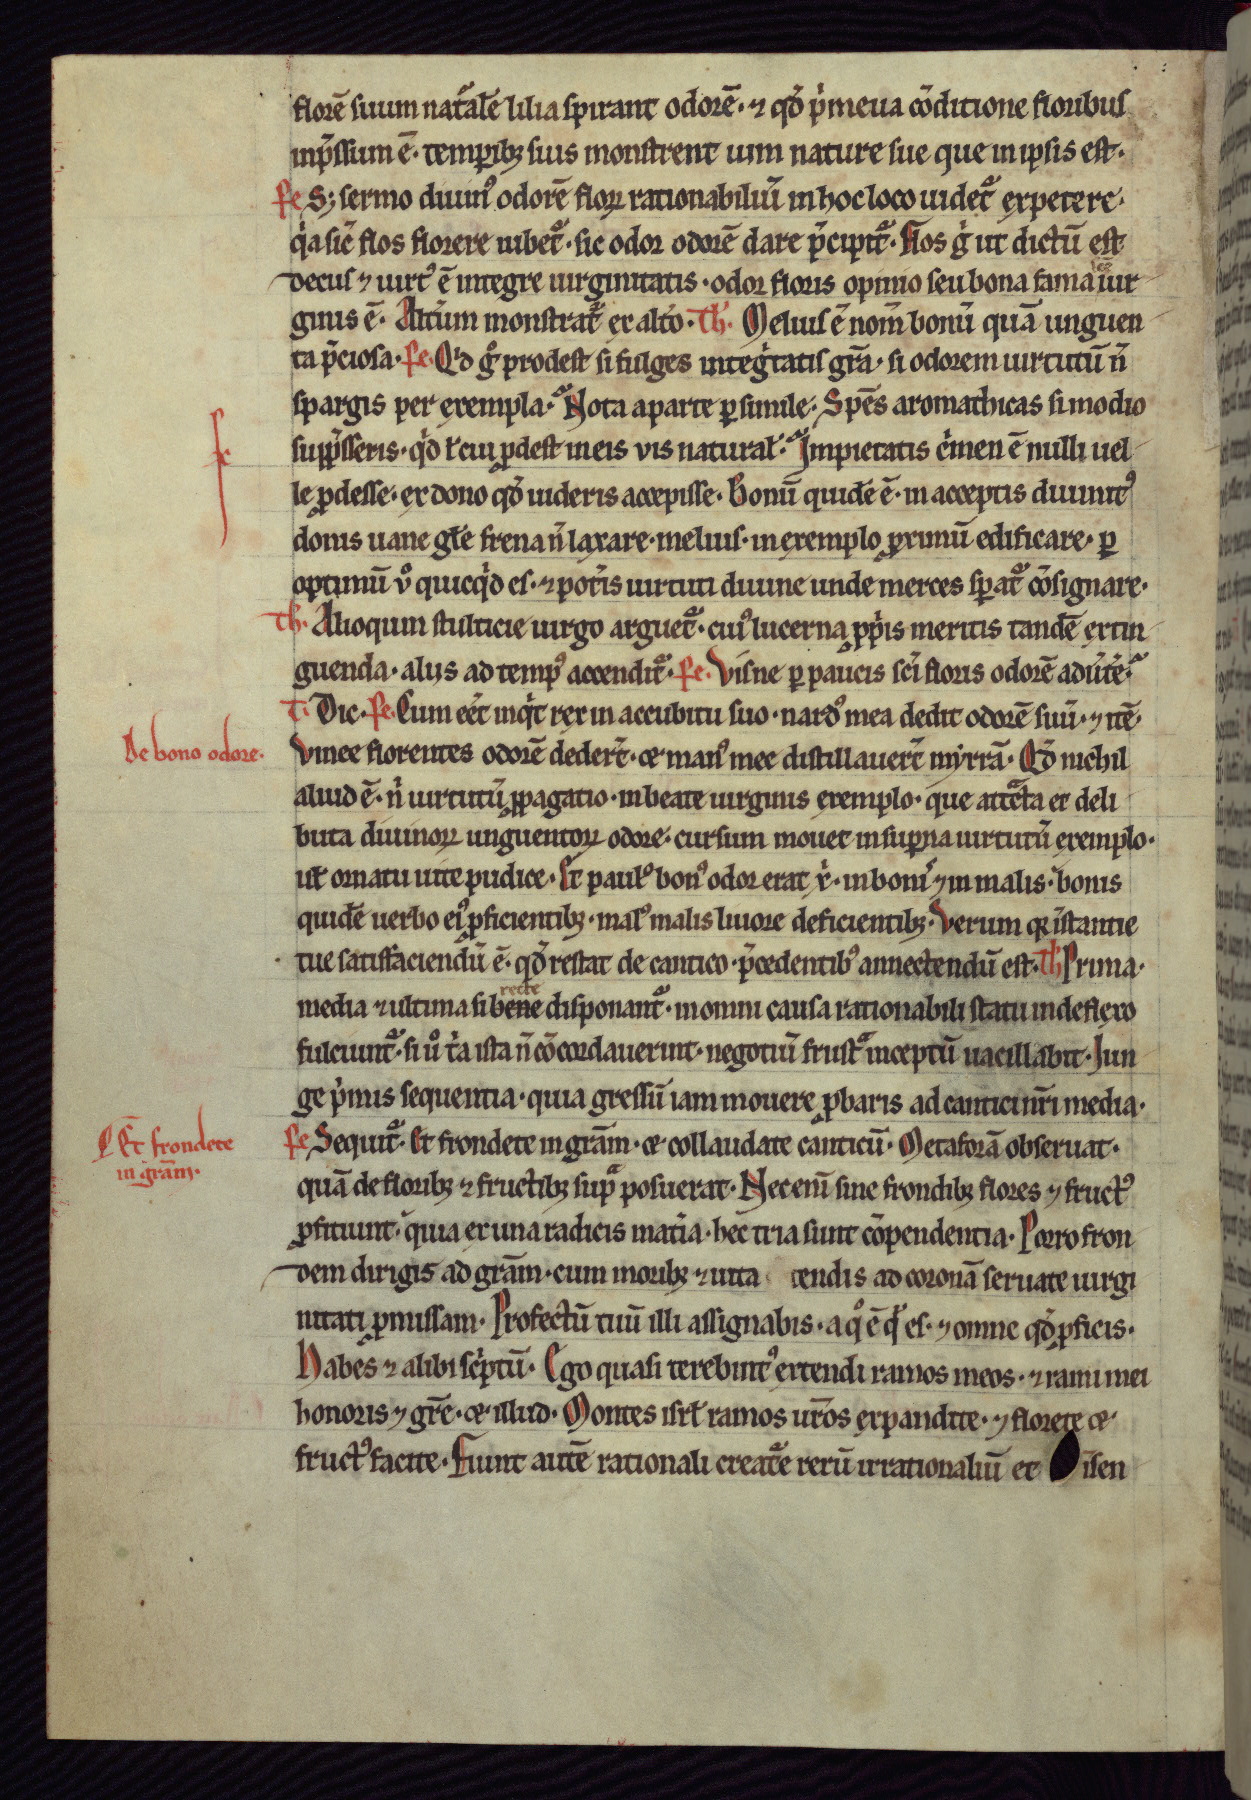 florē suum nat᷑alē lilia spirant odorē· ⁊ qđ p̓meua cōditione floribus
inp̄ssum ē· temporibꝫ suis monstrent uim nature sue que in ipsis est·
Pe Sꝫ sermo diuin᷒ odorē florꝝ rationabiliū in hoc loco uidet᷑ expetere·
q̓a sic̄ flos florere iubet᷑· sic odor odorē dare p̄cipit᷑· Flos g̓ ut dictū est
decus ⁊ uirt᷒ ē integre uirginitatis· odor floris opinio seu bona fama uir
ginis ē· Altc̄um monstrat᷑ ex alto· Th̓· Melius ē nom̄ bonū quā unguen
ta p̄ciosa· Pe· Qid g̊ prodest si fulges integ̓tatis gr̄a· si odorem uirtutū n̄
spargis per exempla· Nota a parte ꝑ simile· Spēs aromathicas si modio
supp̄sseris· qđ ł cui ꝓdest in eis vis natural᷑· Impietatis c̓men ē nulli uel
le ꝓdesse· ex dono qđ uideris accepisse· Bonū quidē ē· in acceptis diuinit᷒
donis uane gl̄e frena n̄ laxare· melius· in exemplo ꝓximū edificare· ꝑ
optimū v̊ quicq̓d es· ⁊ pot̓is uirtuti diuine unde merces sꝑat᷑ cōsignare·
Th· Alioquin stulticie uirgo arguet᷑· cui᷒ lucerna ꝓp̓is meritis tandē extin
guenda· aliis ad temp᷒ accendit᷑· Pe· Visne ꝑ paucis sc̄i floris odorē adūtē·
T· Dic· Pe· Cum eēt inq̓t rex in accubitu suo· nard᷒ mea dedit odorē suū· ⁊ itē·
De bono odore·
Vinee florentes odorē deder̄t· et man᷒ mee distillauer̄t myrrā· Qđ nichil
aliud ē· n̓ uirtutū ꝓpagatio· in beate uirginis exemplo· que attc̄ta et deli
buta diuinorꝝ unguentorꝝ odore· cursum mouet in suꝑna uirtutū exemplo·
uł ornatu uite pudice· Et paul᷒ bon᷒ odor erat x̓· in bonis ⁊ in malis· bonis
quidē uerbo ei᷒ ꝓficientibꝫ· mal᷒ malis liuore deficientibꝫ· Verum qꝛ īstantie
tue satisfaciendū ē· qđ restat de cantico· p̄cedentib᷒ annectendū est· Th̓ Prima·
recte
media ⁊ ultima si bene disponant᷑· in omni causa rationabili statu indeflexo
fulciunt᷑· si ů t̓a ista n̄ cōcordauerint· negotiū frustᷓ inceptū uacillabit· Iun
ge p̓mis sequentia· quia gressū iam mouere ꝓbaris ad cantici nr̄i media·
Et frondete
in grām·
Pe Sequit᷑· Et frondete in grām· et collaudate canticū· Metaforā obseruat·
quā de floribꝫ ⁊ fructibꝫ supᷓ posuerat· Nec enī sine frondibꝫ flores ⁊ fruct᷒
ꝓficiunt· quia ex una radicis mat̓ia· hec tria sunt cōpendentia· Porro fron
dem dirigis ad grām· cum moribꝫ ⁊ uita tendis ad coronā seruate uirgi
nitati ꝓmissam· Profectū tuū illi assignabis· a q̊ ē q̓d es· ⁊ omne qđ ꝓficis·
Habes ⁊ alibi sc̓ptū· Ego quasi terebint᷒ extendi ramos meos· ⁊ rami mei
honoris ⁊ gr̄e· et illud· Montes isrł ramos ur̄os expandite· ⁊ florete et
fruct᷒ facite· Fiunt autē rationali creat᷑e rerū irrationaliū et īsen